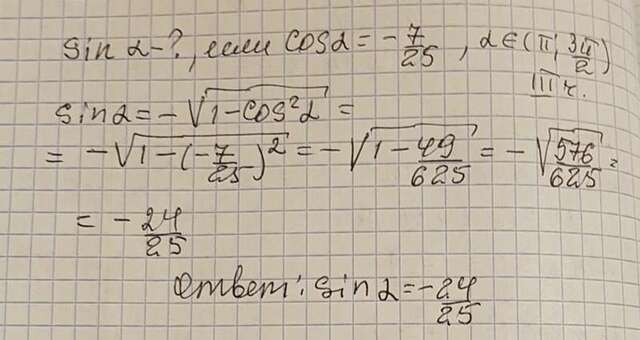 sin α-?, если cos α = -7/25, α∈(π; 3π/2)
III ч.
sin α = -√(1-cos²α) =
= -√(1-(-7/25)²) = -√(1-49/625) = -√(576/625) =
= -24/25
Ответ: sin α = -24/25